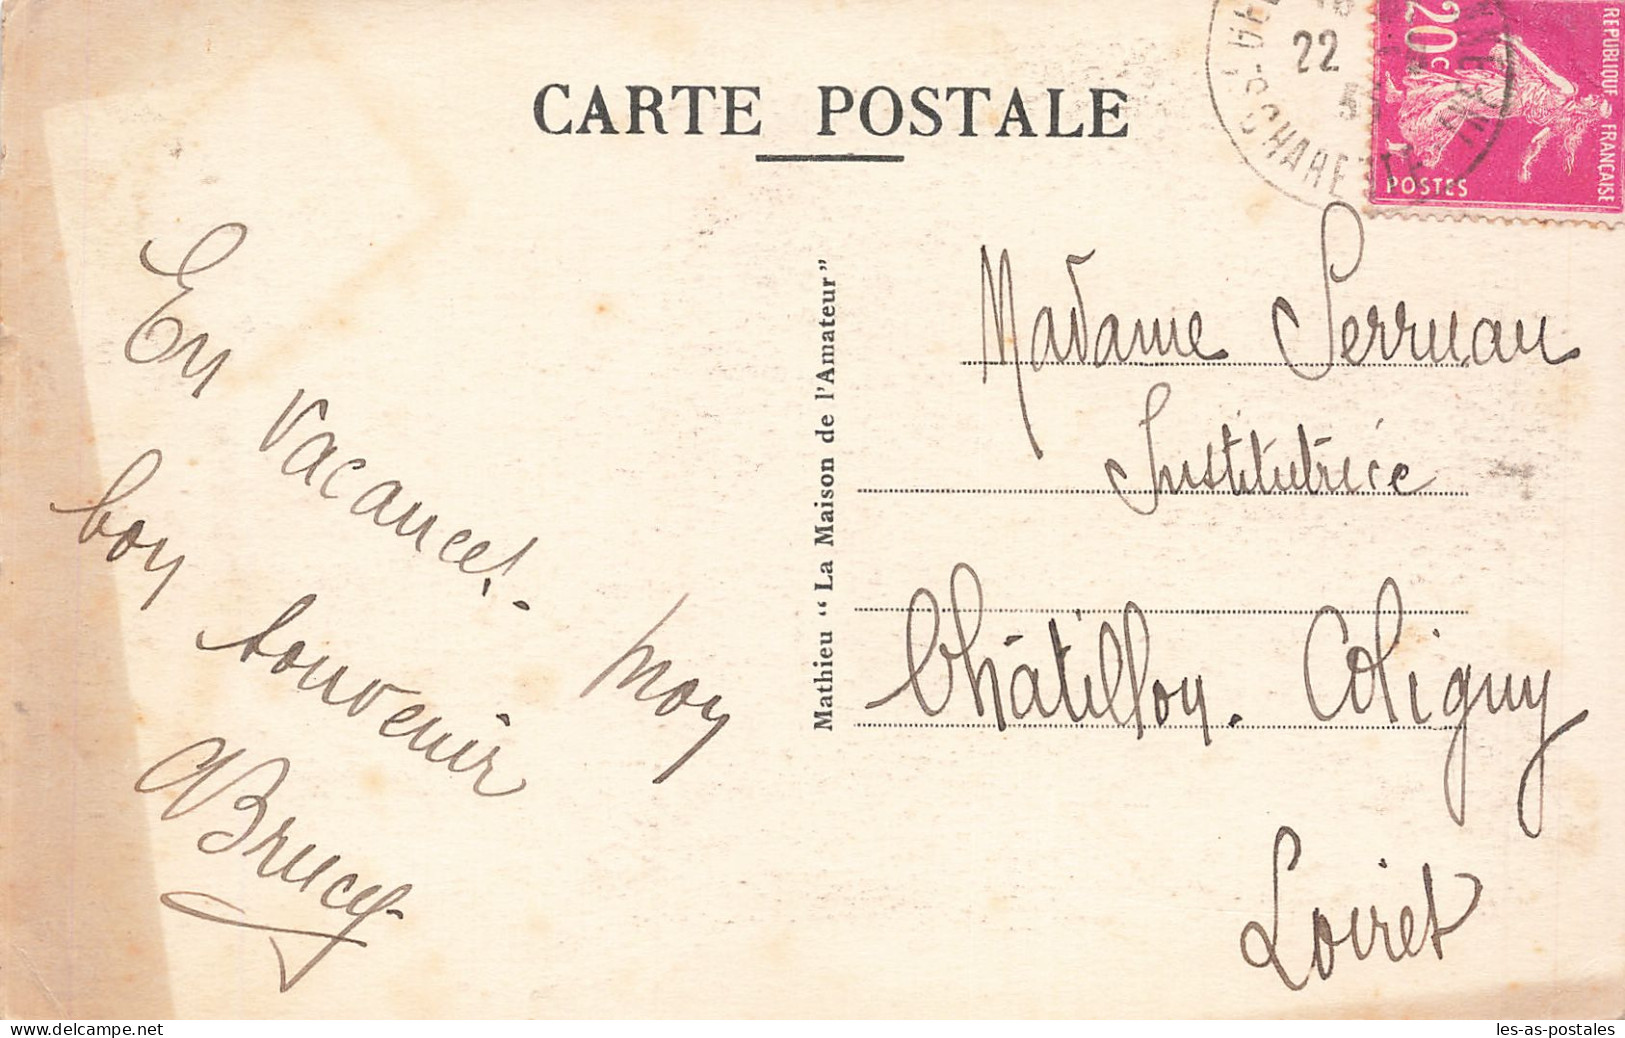 CARTE POSTALE
22
CHARETTE
20c
REPUBLIQUE FRANÇAISE
POSTES
En vacances. Mon
bon souvenir
Mathieu “ La Maison de l'Amateur ”
Madame Serruau
Institutrice
Châtillon. Coligny
Loiret
www.delcampe.net
les-as-postales